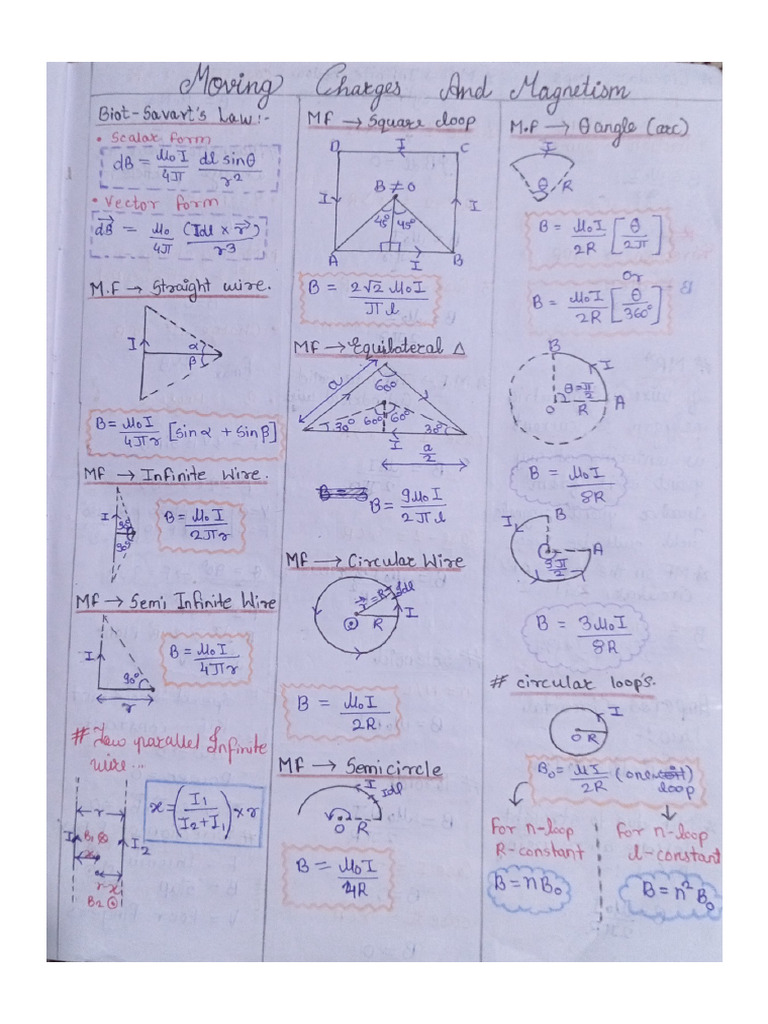 Moving Charges And Magnetism
Biot-Savart's Law:-
• Scalar form
dB = μ₀I/4π dl sinθ/r²
• Vector form
dB⃗ = μ₀/4π (Idl × r⃗)/r³
M.F → Straight wire.
I
α
β
B = μ₀I/4πr [sinα + sinβ]
MF → Infinite Wire.
I
90°
90°
B = μ₀I/2πr
MF → Semi Infinite Wire
I
90°
r
B = μ₀I/4πr
# Two parallel Infinite
wire...
r
I
B₁ ⊗
I2
x
r-x
B2 ⊙
x = (I₁/I₂+I₁) × r
MF → Square loop
D I C
I
B ≠ 0
I
45° 45°
A I B
B = 2√2 μ₀I/πl
MF → Equilateral Δ
a
60°
60° 60°
30° 30°
I
a/2
B = 9μ₀I/2πl
MF → Circular Wire
r⃗=R
Idl
R
I
B = μ₀I/2R
MF → Semicircle
I
Idl
O R
B = μ₀I/4R
M.F → θ angle (arc)
I
θ R
B = μ₀I/2R [θ/2π]
Or
B = μ₀I/2R [θ/360°]
B
I
θ=π/2
O R A
B = μ₀I/8R
I
B
A
3π/2
B = 3μ₀I/8R
# circular loop's.
I
O R
B₀ = μI/2R (one
loop
For n-loop
R-constant
B = nB₀
For n-loop
l-constant
B = n²B₀